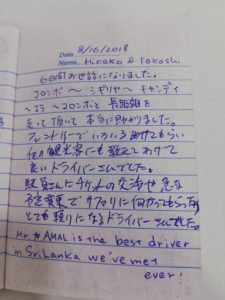 Date. 8/16/2018
Name. Hiroko & Takashi
6日間お世話になりました。
コロンボ〜シギリヤ〜キャンディ
〜コロンボと長距離を
走って頂いて本当に助かりました。
フレンドリーでいろいろ助けてもらい
他の観光客にも教えてあげて
良いドライバーさんでした。
駅員さんにチケットの交渉や急な
予定変更でサファリに向かってもらったり
とても頼りになるドライバーさんでした。
Mr. AMAL is the best driver
in Sri Lanka we've met
ever!